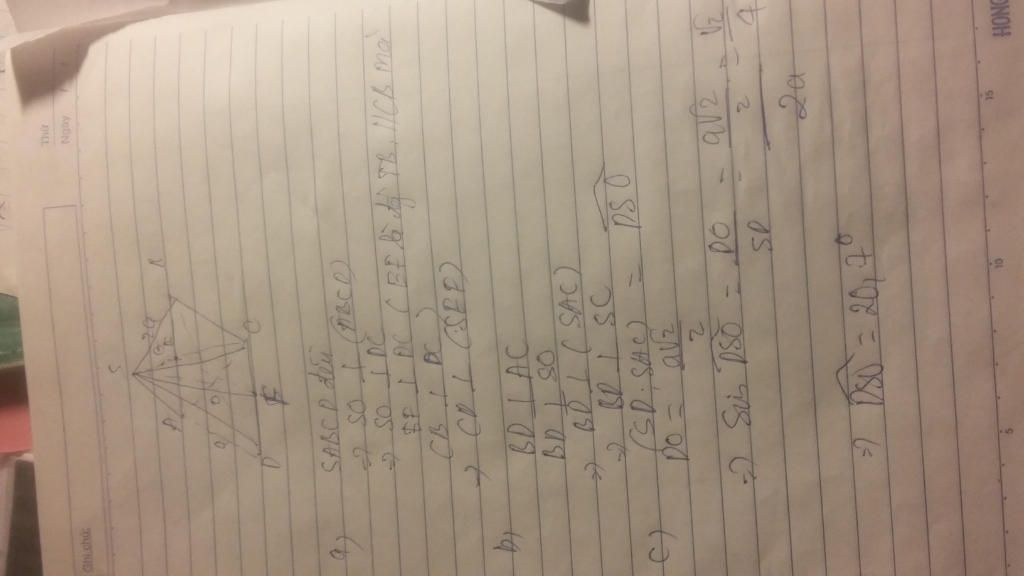 Thứ
Ngày
Ghi chú
S
2a
a) SABCD đều
=> SO ⊥ (ABCD)
=> SO ⊥ DC
EF ⊥ DC (EF là đg TB, //CB mà
CB ⊥ DC)
=> CD ⊥ (SEF)
b) BD ⊥ AC
BD ⊥ SO
=> BD ⊥ (SAC)
=> BD ⊥ SC
c) (SD, SAC) = DSO
DO = a√2/2
=> Sin DSO = DO/SD = (a√2/2)/2a = √2/4
=> DSO = 20,7°
5
10
15
HONG